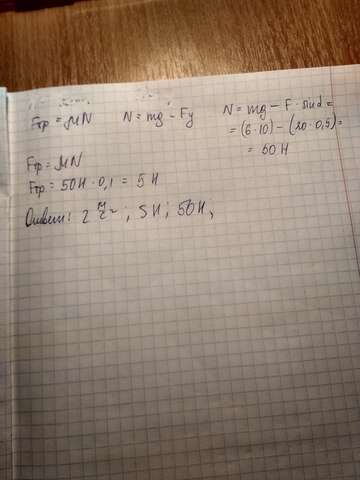 Fтр = μN N = mg - Fy N = mg - F · sinα =
= (6·10) - (20·0,5) =
= 50 H
Fтр = μN
Fтр = 50H · 0,1 = 5 H
Ответ: 2 м/с²; 5 H; 50H;